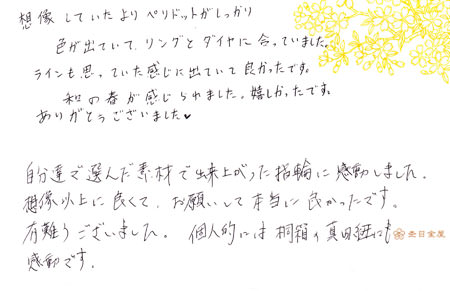 想像していたよりペリドットがしっかり
色が出ていて、リングとダイヤに合っていました。
ラインも思っていた感じに出ていて良かったです。
和の春が感じられました。嬉しかったです。
ありがとうございました♥
自分達で選んだ素材で出来上がった指輪に感動しました。
想像以上に良くて、お願いして本当に良かったです。
有難うございました。個人的には桐箱の真田紐にも
感動です。
杢目金屋